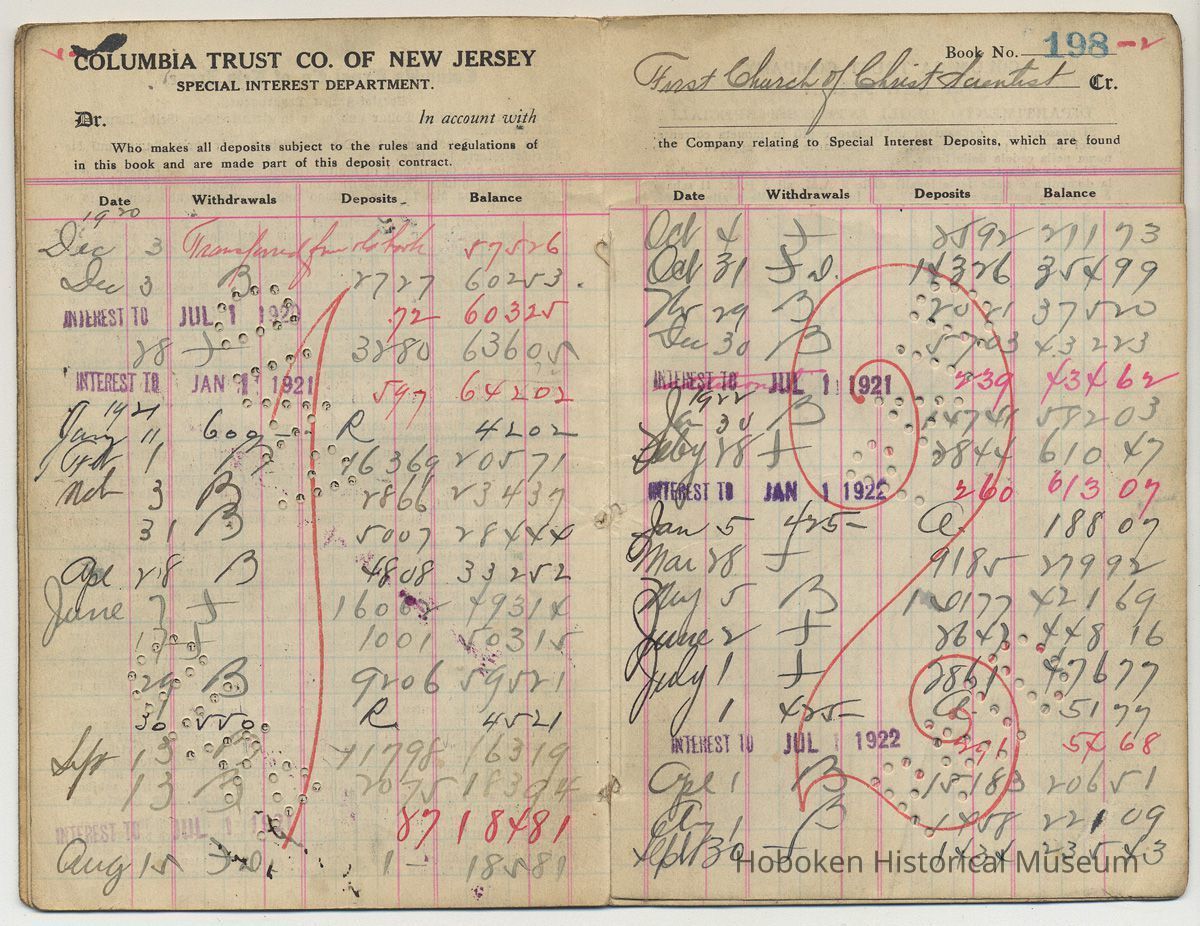 COLUMBIA TRUST CO. OF NEW JERSEY
SPECIAL INTEREST DEPARTMENT.
Dr. In account with
Who makes all deposits subject to the rules and regulations of
in this book and are made part of this deposit contract.
Date Withdrawals Deposits Balance
1920
Dec 3 Transferred from old book 57526
Dec 3 B 2727 60253
INTEREST TO JUL 1 1920 .72 60325
28 J 3280 63605
INTEREST TO JAN 1 1921 597 64202
1921
Jany 11 600 — R 4202
1 16369 20571
Mch 3 B 2866 23437
31 B 5007 28444
Ape 28 B 4808 33252
June 7 J 16062 49314
17 J 1001 50315
29 B 9206 59521
30 550 R 4521
Sept 13 B 11798 16319
13 B 2075 18394
INTEREST TO JUL 1 87 18481
Aug 15 J.D. 1 — 18581
Book No. 198-2
First Church of Christ Scientist Cr.
the Company relating to Special Interest Deposits, which are found
Date Withdrawals Deposits Balance
Oct 4 J 2592 21173
Oct 31 J.D. 14326 35499
Nov 29 B 2021 37520
Dec 30 B 5703 43223
INTEREST TO JUL 1 1921 239 43462
1922
Jan 30 B 14741 58203
Feby 28 J 2844 61047
INTEREST TO JAN 1 1922 260 61307
Jan 5 425— R 18807
Mar 28 J 9185 27992
May 5 B 10177 42169
June 2 J 2647 44816
July 1 J 2861 47677
1 425— R 5177
INTEREST TO JUL 1 1922 291 5468
Ape 1 B 15183 20651
1 B 1458 22109
Sept 30 J 1434 23543
Hoboken Historical Museum